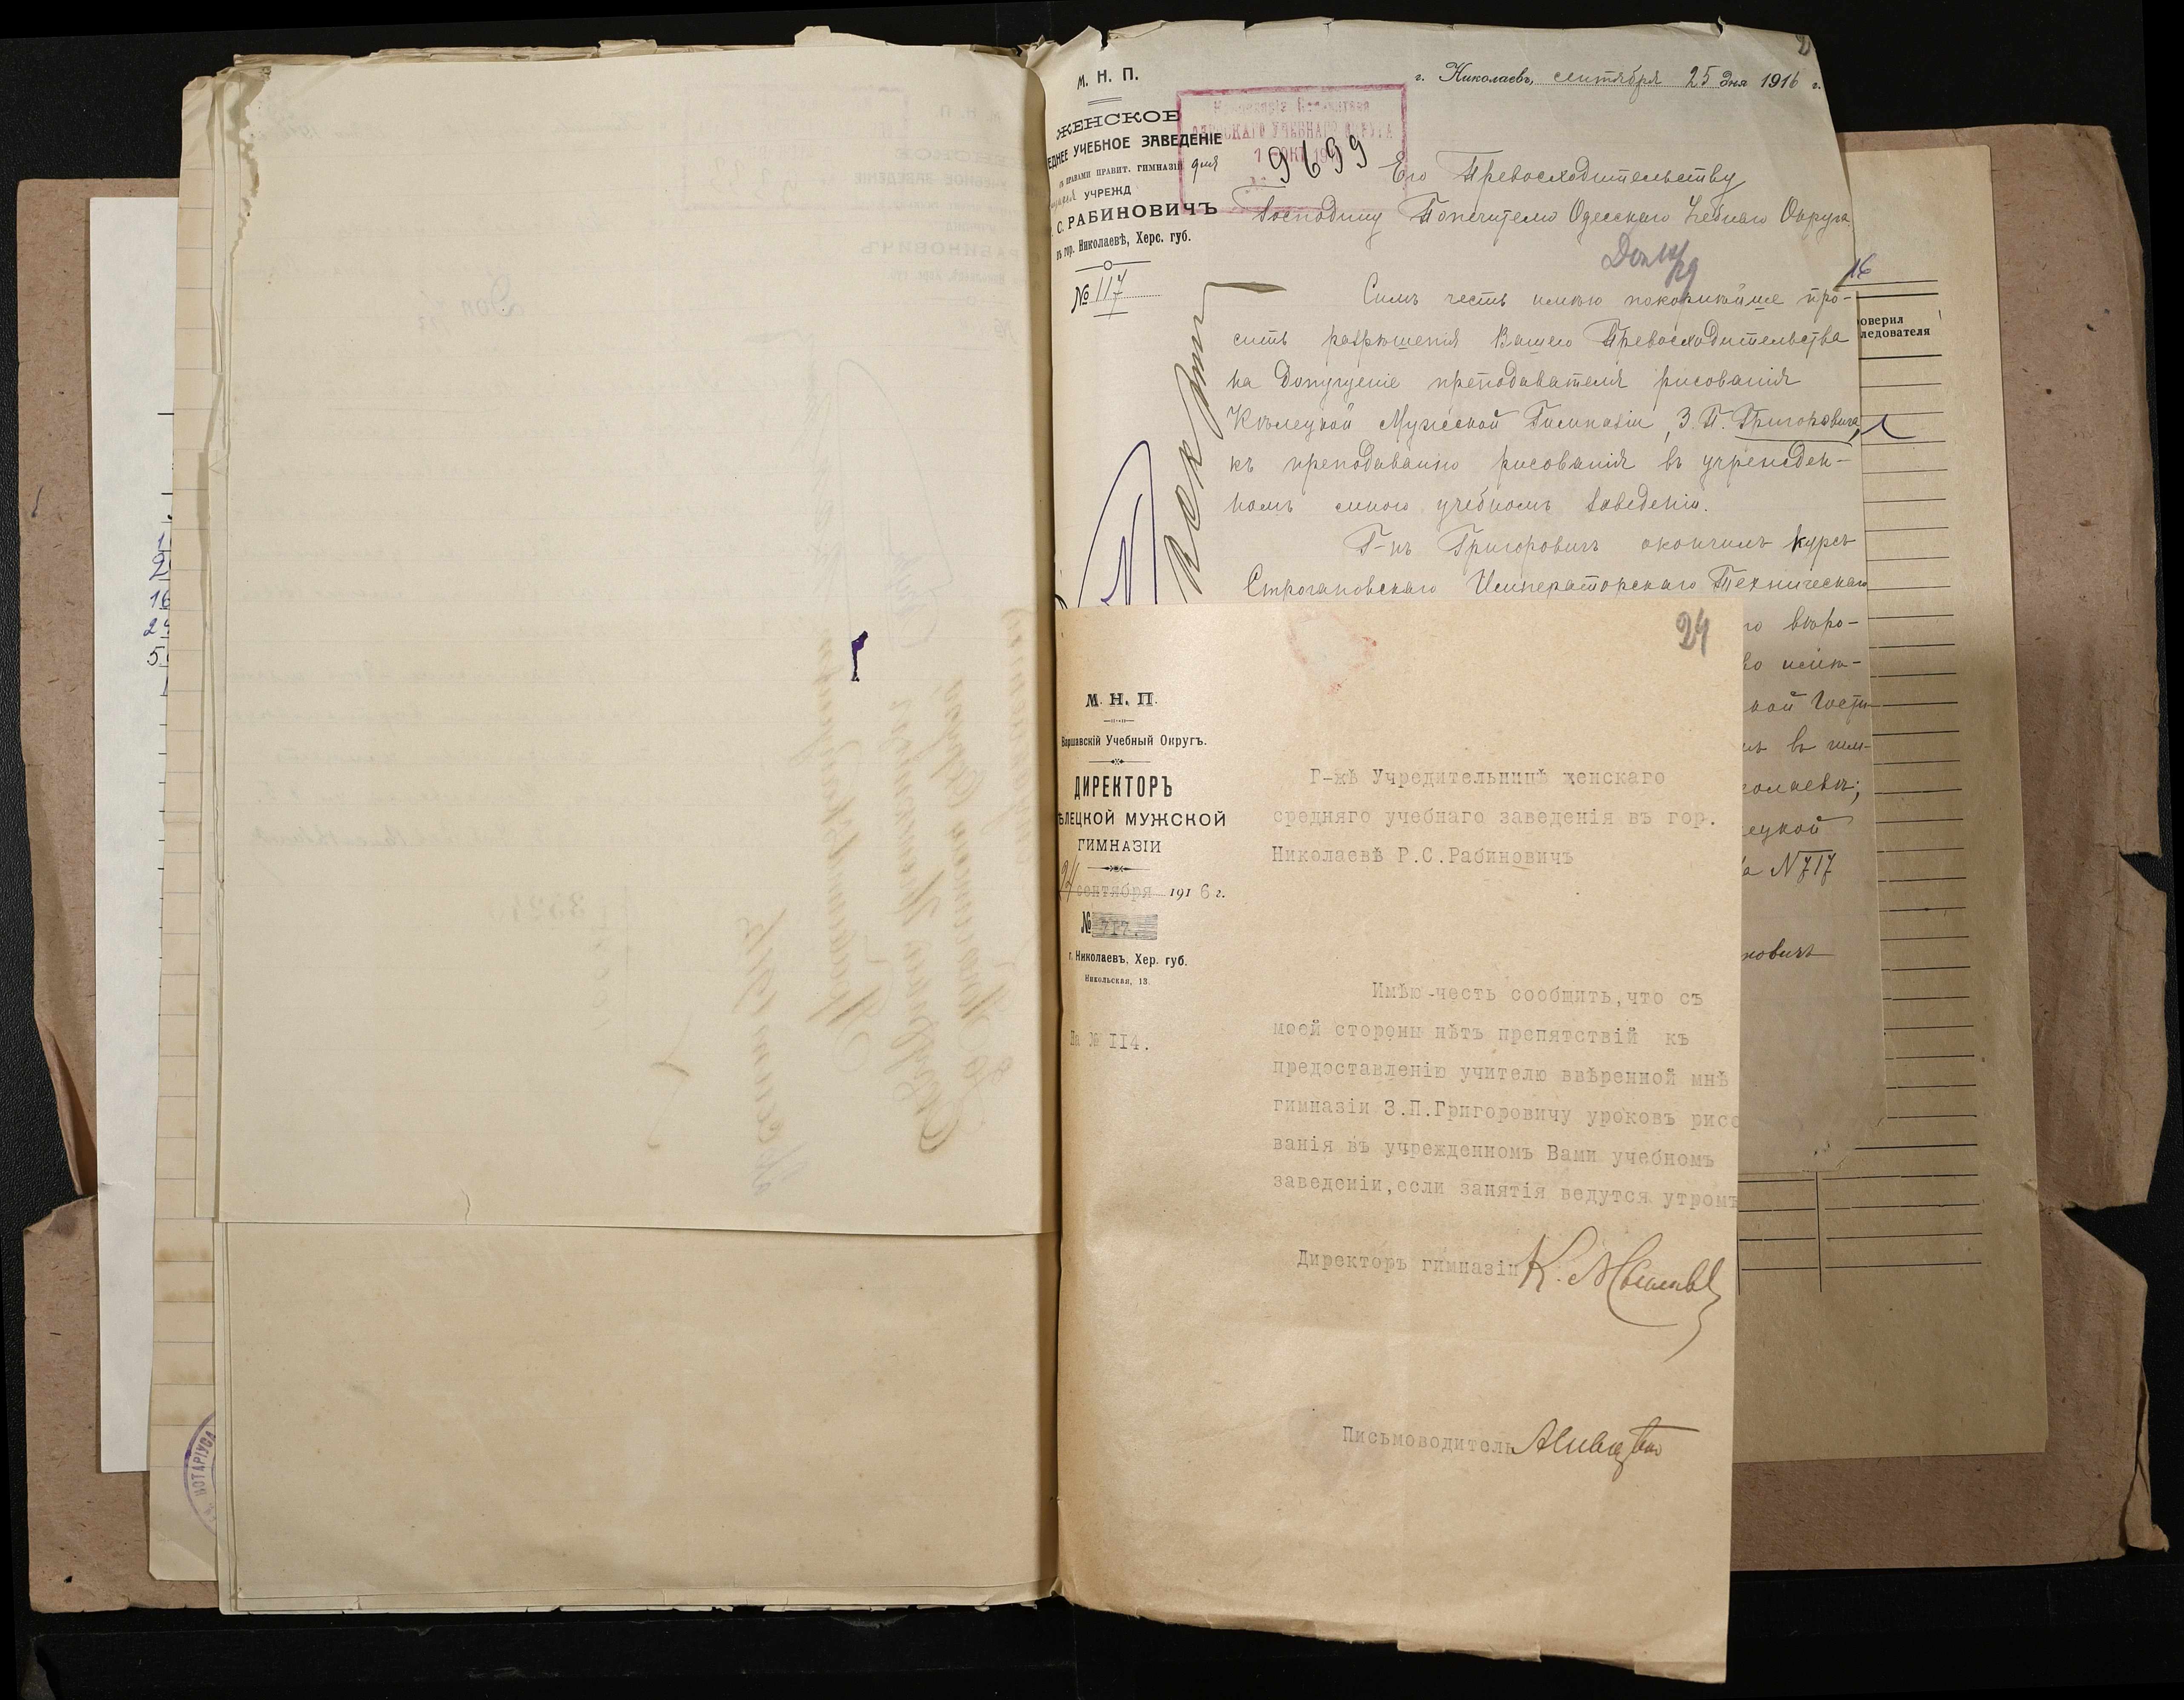 М. Н. П.
ЖЕНСКОЕ
ЕДНЕЕ УЧЕБНОЕ ЗАВЕДЕНІЕ
СЪ ПРАВАМИ ПРАВИТ. ГИМНАЗІЙ для
УЧРЕЖД
С. РАБИНОВИЧЪ
въ гор. Николаевѣ, Херс. губ.
№ 117
г. Николаевъ, сентября 25 дня 1916 г.
ОДЕССКАГО УЧЕБНАГО ОКРУГА
1 ОКТ 191
9699
Его Превосходительству
Господину Попечителю Одесскаго Учебнаго Округа
Симъ честь имѣю покорнѣйше про-
сить разрѣшенія Вашего Превосходительства
на допущеніе преподавателя рисованія
Кѣлецкой Мужской Гимназіи, З. П. Григоровича,
къ преподаванію рисованія въ учрежден-
номъ мною учебномъ заведеніи.
Г-нъ Григоровичъ окончилъ курсъ
Строгановскаго Императорскаго Техническаго
го вѣро-
кой
въ гим-
колаевѣ;
ецкой
а N 717
новичъ
16
оверил
ледователя
24
М. Н. П.
Варшавскій Учебный Округъ.
ДИРЕКТОРЪ
ѢЛЕЦКОЙ МУЖСКОЙ
ГИМНАЗІИ
24 сентября 1916 г.
№ 717.
г. Николаевъ, Хер. губ.
Никольская, 13.
На № II4.
Г-жѣ Учредительницѣ женскаго
средняго учебнаго заведенія въ гор.
Николаевѣ Р.С.Рабиновичъ
Имѣю честь сообщить,что съ
моей стороны нѣтъ препятствій къ
предоставленію учителю ввѣренной мнѣ
гимназіи З.П.Григоровичу уроковъ рисо
ванія въ учрежденномъ Вами учебномъ
заведеніи,если занятія ведутся утромъ
Директоръ гимназіи
Письмоводитель
НОТАРІУСА